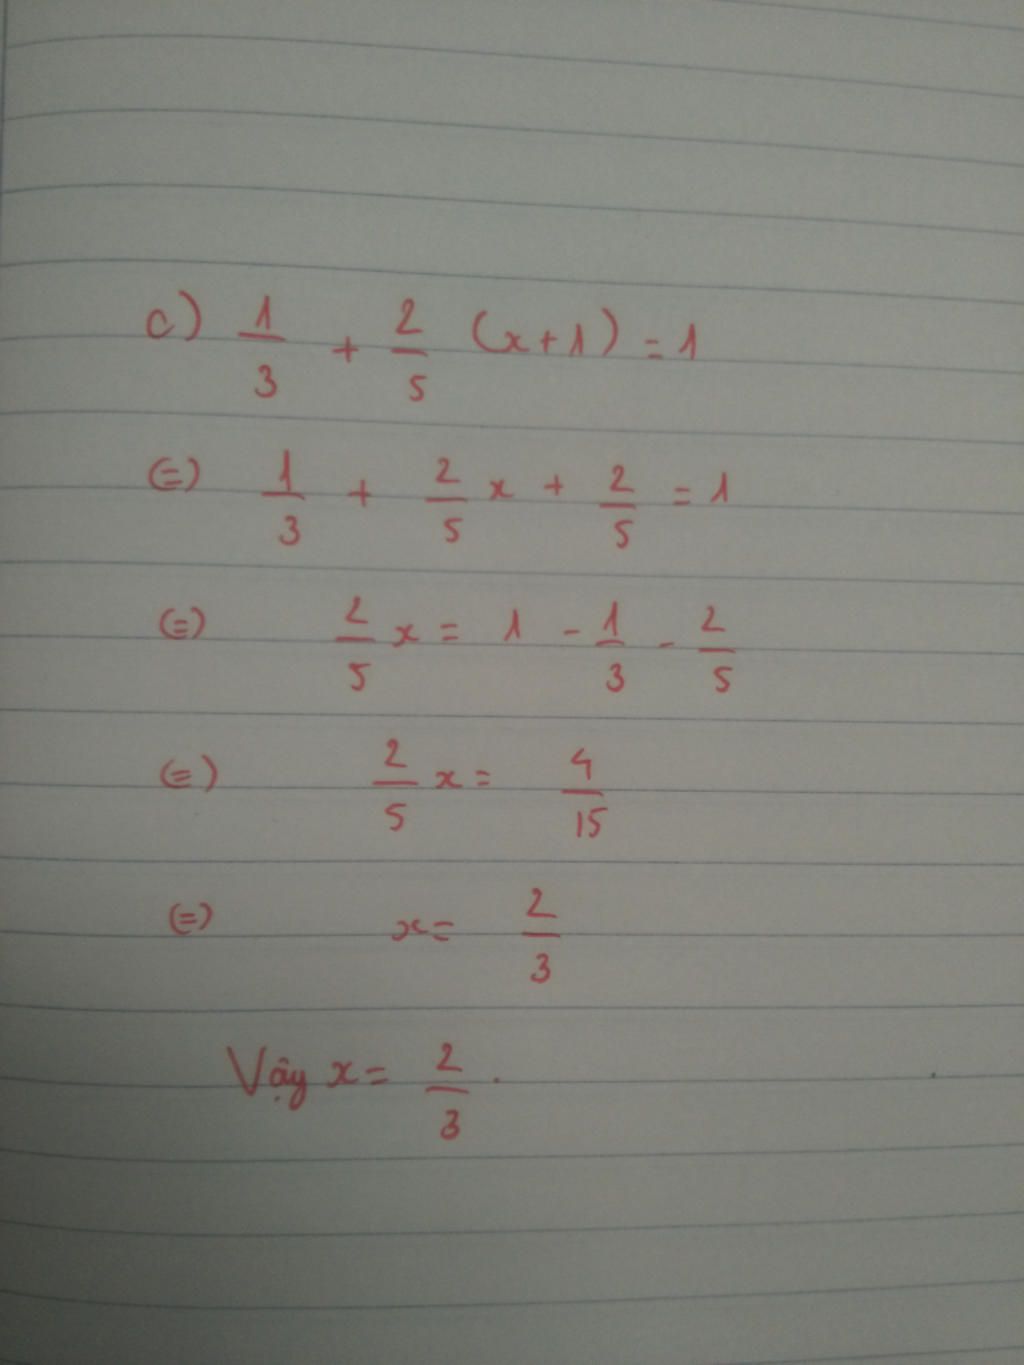 c) 1/3 + 2/5 (x+1) = 1
(=) 1/3 + 2/5 x + 2/5 = 1
(=) 2/5 x = 1 - 1/3 - 2/5
(=) 2/5 x = 4/15
(=) x = 2/3
Vậy x = 2/3.